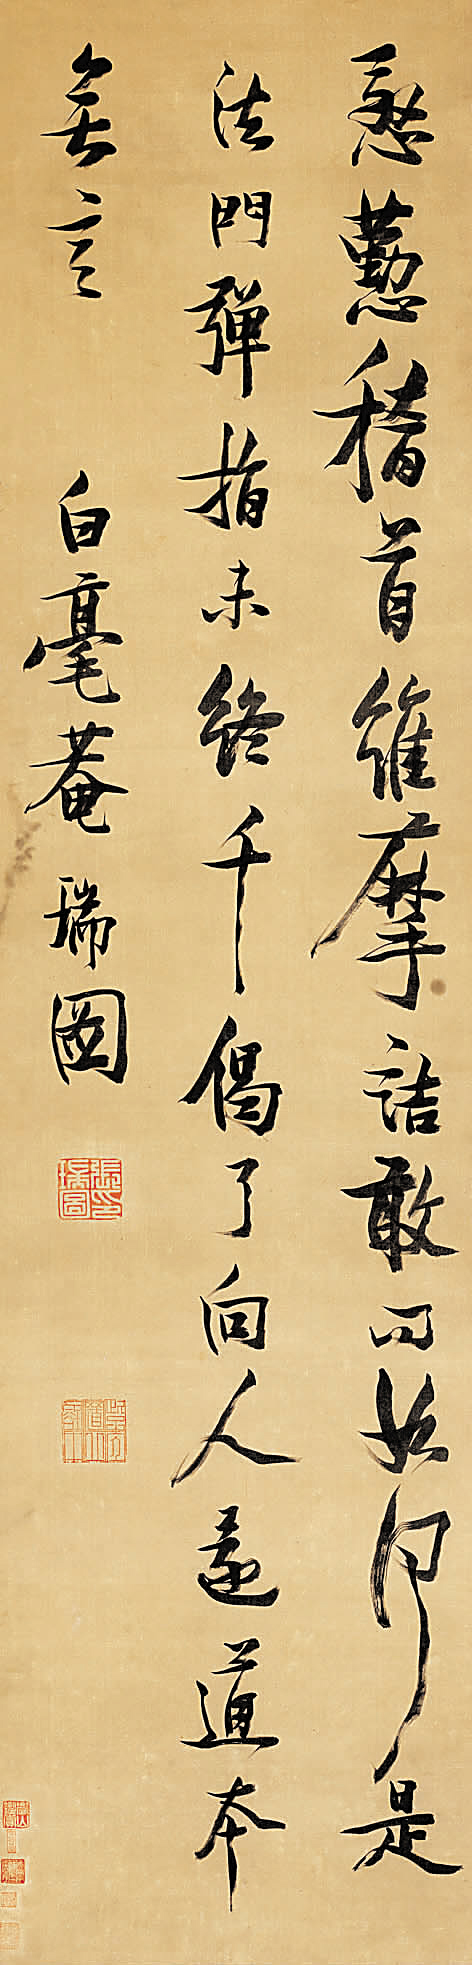 慇懃稽首維摩詰敢問如何是
法門彈指未終千偈了向人還道本
無言
白毫菴瑞圖
張瑞圖印